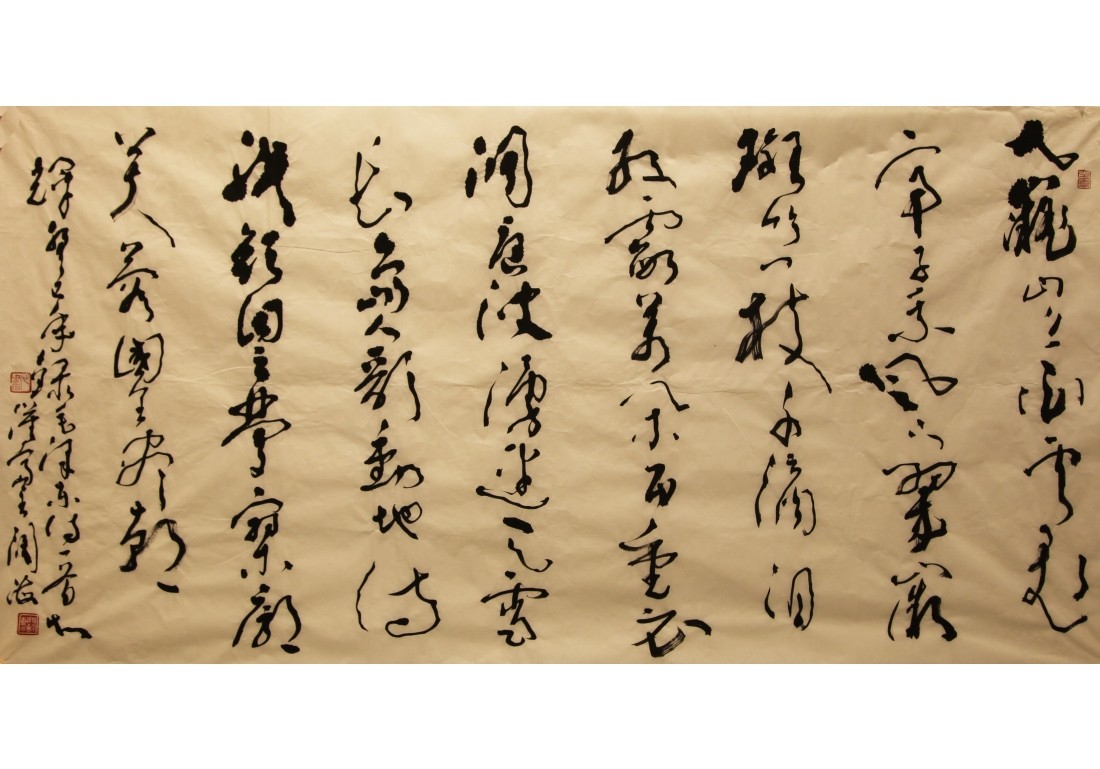 九嶷山上白雲飛
帝子乘風下翠微
斑竹一枝千滴泪
紅霞萬朵百重衣
洞庭波涌連天雪
長島人歌動地詩
我欲因之夢寥廓
芙蓉國里盡朝
輝 癸巳年錄毛澤東詩一首